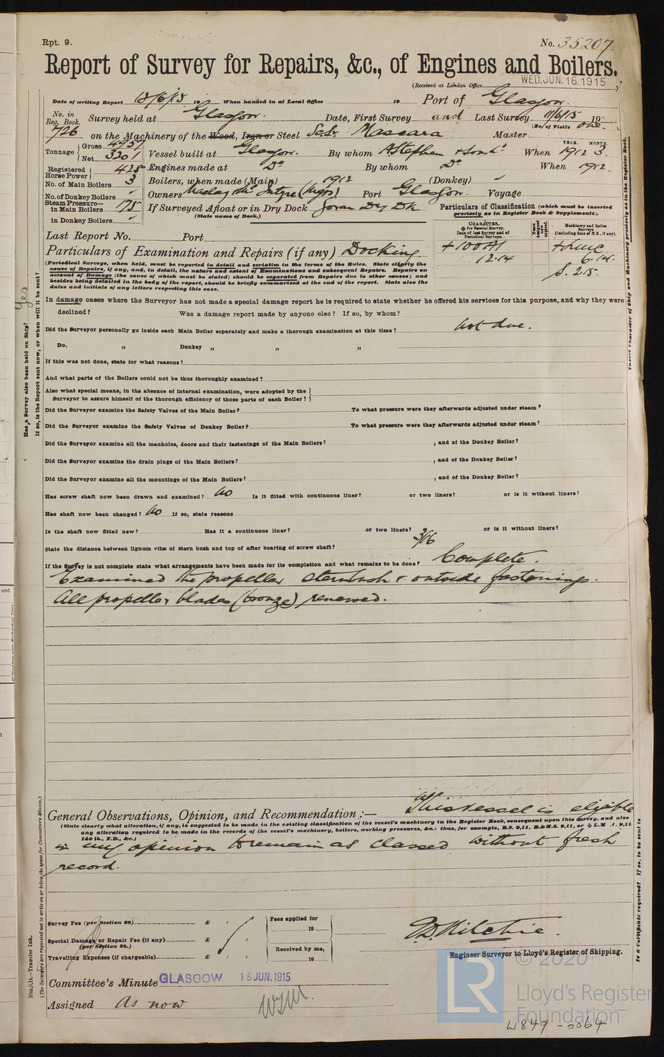 Rpt. 9.
No. 35207
Report of Survey for Repairs, &c., of Engines and Boilers.
(Received at London Office WED. JUN. 16 1915)
Date of writing Report 15/6/15 19 When handed in at Local Office 19 Port of Glasgow
No. in Reg. Book. 726 Survey held at Glasgow Date, First Survey and Last Survey 11/6/15 19
(No. of Visits one)
on the Machinery of the Wood, Iron or Steel Massara Master
Tonnage Gross 4957 Net 3201 Vessel built at Glasgow By whom A Stephen & Sons Ld When 1912 3
YEAR. MONTH.
Registered Horse Power 425 Engines made at Do By whom Do When 1912
No. of Main Boilers 3 Boilers, when made (Main) 1912 (Donkey)
No. of Donkey Boilers Owners Maclay McIntyre (Mgrs) Port Glasgow Voyage
Steam Pressure in Main Boilers 175 If Surveyed Afloat or in Dry Dock Govan Dry Dk
in Donkey Boilers (State name of Dock.)
Particulars of Classification (which must be inserted precisely as in Register Book & Supplements).
Last Report No. Port
CHARACTER. + 100A1 12.14
+ LMC 6.14 S. 2.15.
Particulars of Examination and Repairs (if any) Docking
(Periodical Surveys, when held, must be reported in detail and seriatim in the terms of the Rules. State clearly the cause of Repairs, if any, and, in detail, the nature and extent of Examinations and subsequent Repairs. Repairs on account of Damage (the cause of which must be stated) should be separated from Repairs due to other causes; and besides being detailed in the body of the report, should be briefly summarized at the end of the report. State also the dates and initials of any letters respecting this case.
In damage cases where the Surveyor has not made a special damage report he is required to state whether he offered his services for this purpose, and why they were
declined? Was a damage report made by anyone else? If so, by whom?
Did the Surveyor personally go inside each Main Boiler separately and make a thorough examination at this time? not due.
Do. „ Donkey „ „ „
If this was not done, state for what reasons?
And what parts of the Boilers could not be thus thoroughly examined?
Also what special means, in the absence of internal examination, were adopted by the
Surveyor to assure himself of the thorough efficiency of those parts of each Boiler?
Did the Surveyor examine the Safety Valves of the Main Boiler? To what pressure were they afterwards adjusted under steam?
Did the Surveyor examine the Safety Valves of Donkey Boiler? To what pressure were they afterwards adjusted under steam?
Did the Surveyor examine all the manholes, doors and their fastenings of the Main Boilers? , and of the Donkey Boiler?
Did the Surveyor examine the drain plugs of the Main Boilers? , and of the Donkey Boiler?
Did the Surveyor examine all the mountings of the Main Boilers? , and of the Donkey Boiler?
Has screw shaft now been drawn and examined? No Is it fitted with continuous liner? or two liners? or is it without liners?
Has shaft now been changed? No If so, state reasons
Is the shaft now fitted new? Has it a continuous liner? or two liners? or is it without liners?
State the distance between lignum vitæ of stern bush and top of after bearing of screw shaft? 3/16
If the Survey is not complete state what arrangements have been made for its completion and what remains to be done? Complete.
Examined the propeller, sternbush & outside fastenings.
All propeller blades (bronze) renewed.
General Observations, Opinion, and Recommendation :— This vessel is eligible
(State clearly what alteration, if any, is suggested to be made in the existing classification of the vessel's machinery in the Register Book, consequent upon this survey, and also any alteration required to be made in the records of the vessel's machinery, boilers, working pressures, &c.: thus, for example,
in my opinion to remain as classed without fresh
record.
Survey Fee (per Section 28) £
Special Damage or Repair Fee (if any) £
(per Section 28.)
Travelling Expenses (if chargeable) £
Fees applied for 19
Received by me, 19
D Ritchie
Engineer Surveyor to Lloyd's Register of Shipping.
Committee's Minute GLASGOW 15 JUN. 1915
Assigned As now
© 2020
LR
Lloyd's Register Foundation
W849-0064
Has a Survey also been held on Ship? Yes
If so, is the Report sent now, or when will it be sent?